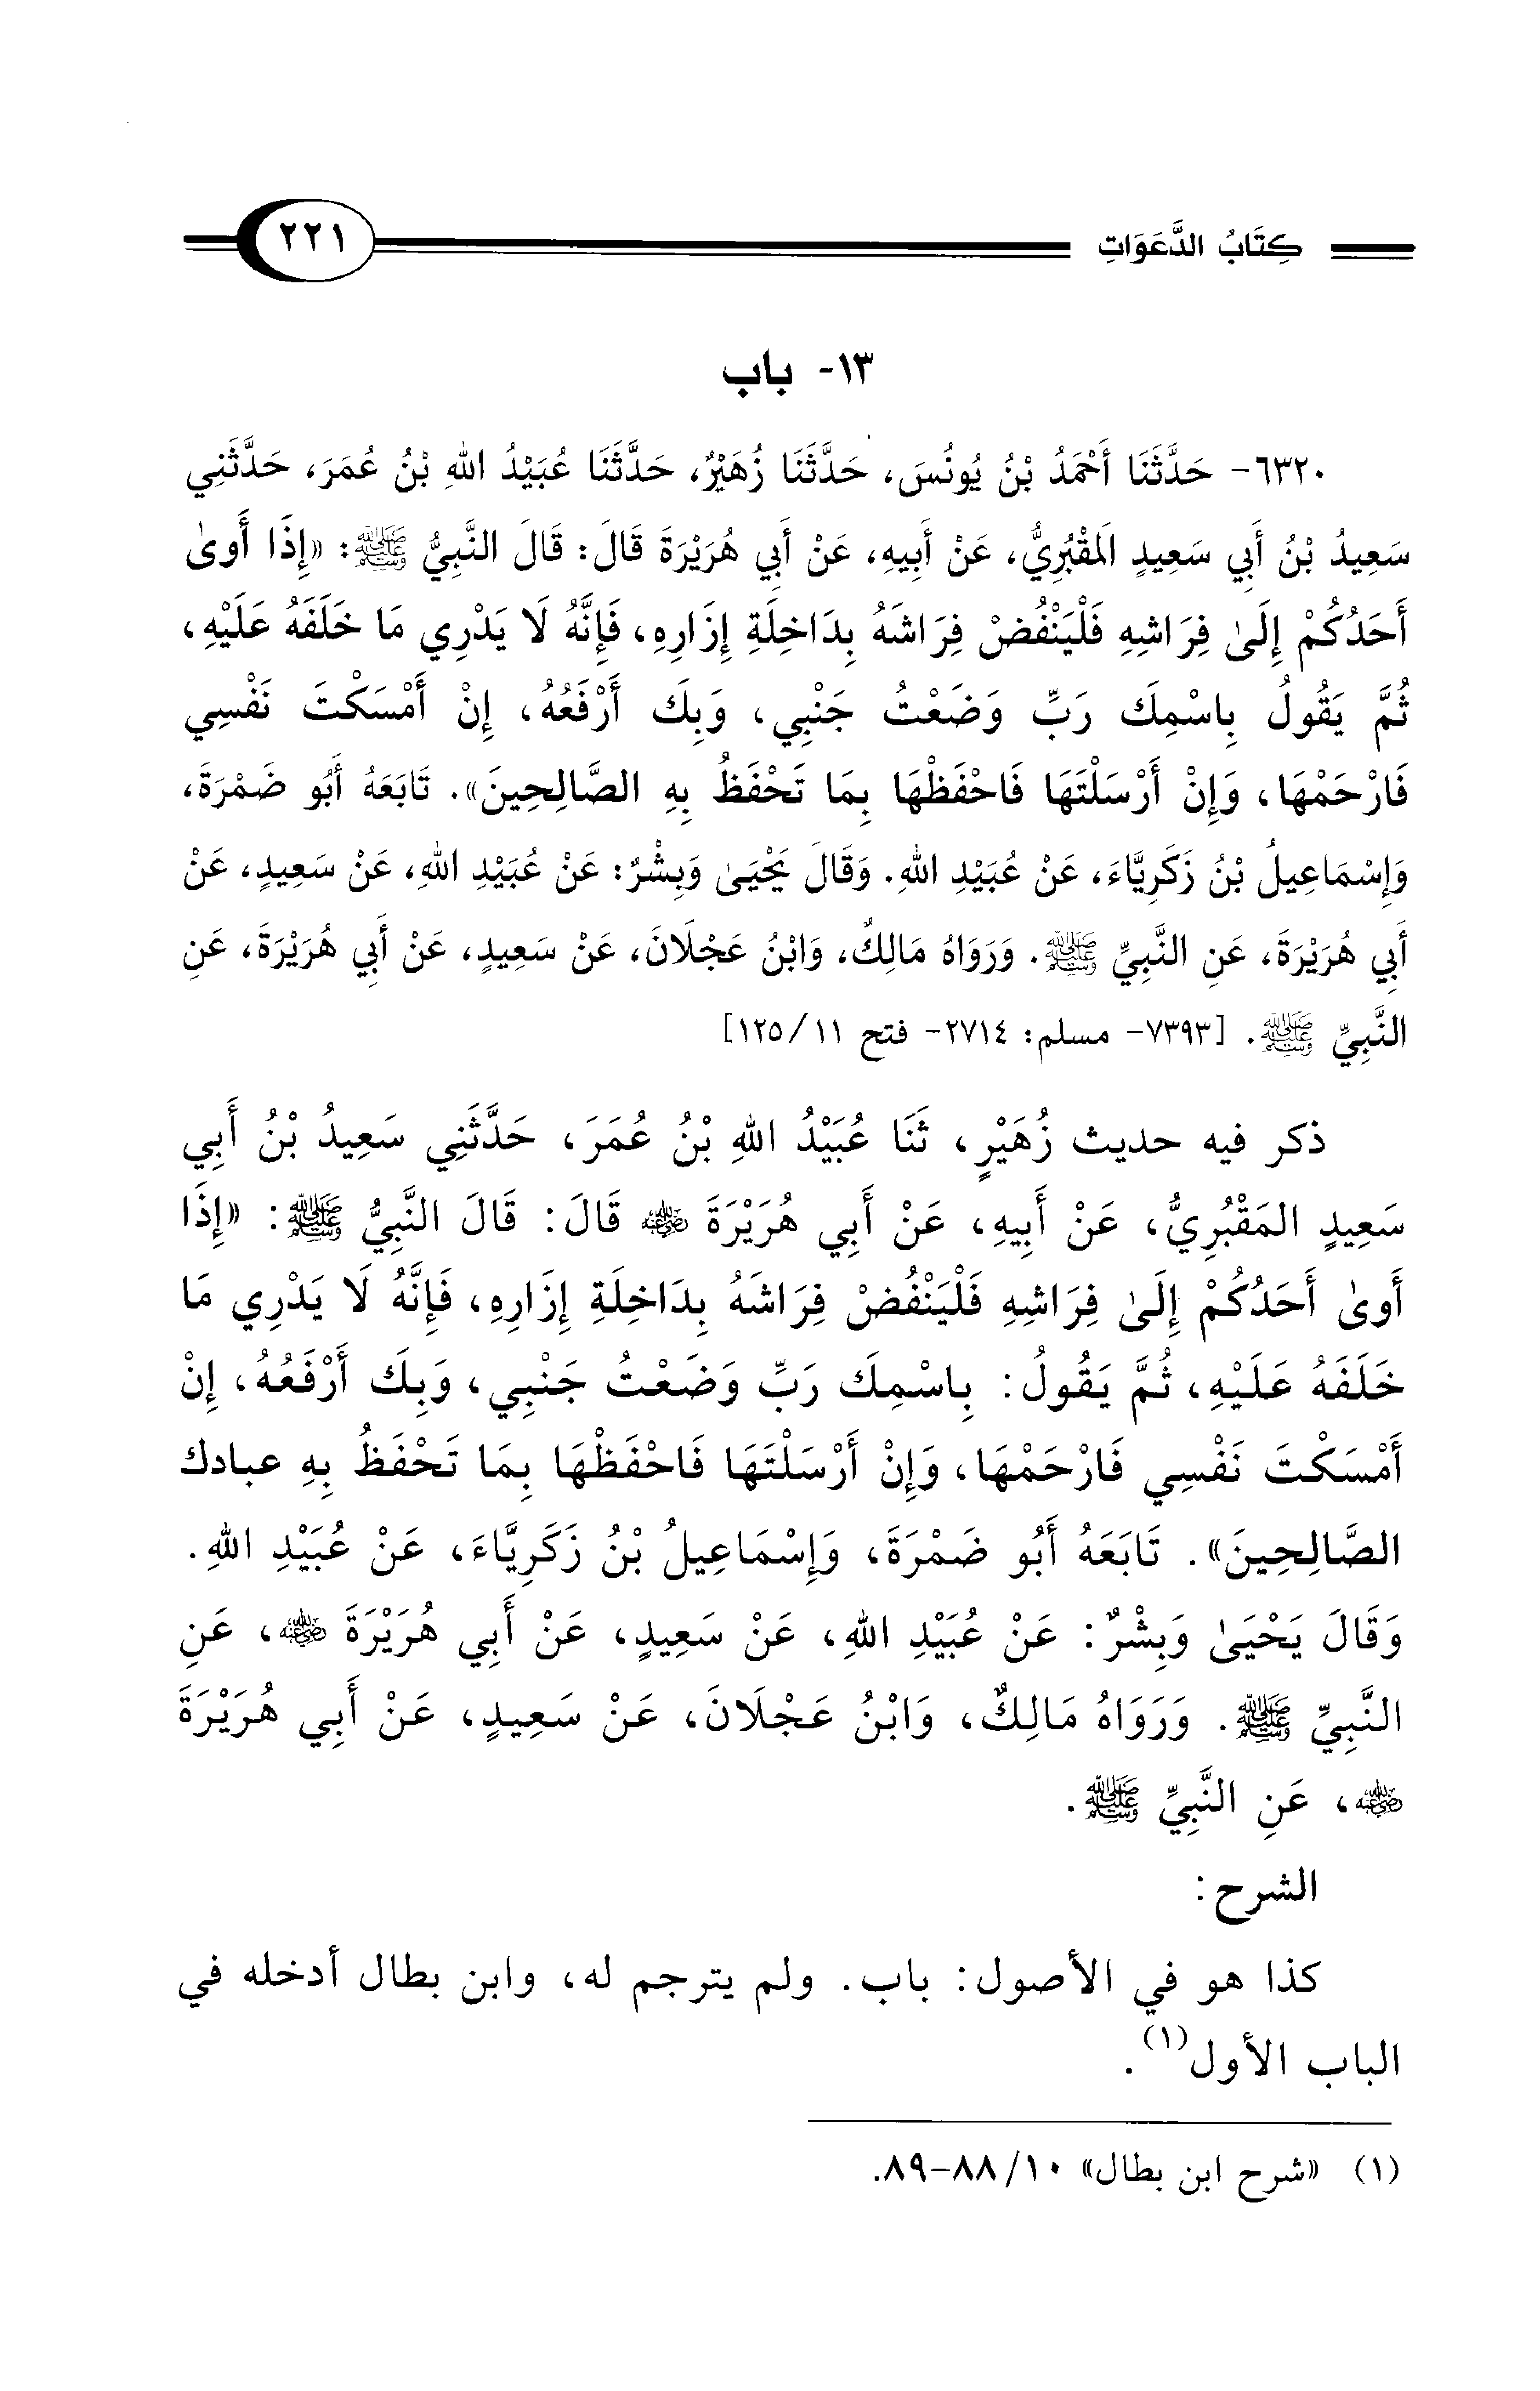 كِتَابُ الدَّعَوَاتِ ٢٢١
١٣- باب
٦٣٢٠- حَدَّثَنَا أَحْمَدُ بْنُ يُونُسَ، حَدَّثَنَا زُهَيْرٌ، حَدَّثَنَا عُبَيْدُ اللهِ بْنُ عُمَرَ، حَدَّثَنِي
سَعِيدُ بْنُ أَبِي سَعِيدٍ المَقْبُرِيُّ، عَنْ أَبِيهِ، عَنْ أَبِي هُرَيْرَةَ قَالَ: قَالَ النَّبِيُّ ﷺ: «إِذَا أَوىٰ
أَحَدُكُمْ إِلَىٰ فِرَاشِهِ فَلْيَنْفُضْ فِرَاشَهُ بِدَاخِلَةِ إِزَارِهِ، فَإِنَّهُ لَا يَدْرِي مَا خَلَفَهُ عَلَيْهِ،
ثُمَّ يَقُولُ بِاسْمِكَ رَبِّ وَضَعْتُ جَنْبِي، وَبِكَ أَرْفَعُهُ، إِنْ أَمْسَكْتَ نَفْسِي
فَارْحَمْهَا، وَإِنْ أَرْسَلْتَهَا فَاحْفَظْهَا بِمَا تَحْفَظُ بِهِ الصَّالِحِينَ». تَابَعَهُ أَبُو ضَمْرَةَ،
وَإِسْمَاعِيلُ بْنُ زَكَرِيَّاءَ، عَنْ عُبَيْدِ اللهِ. وَقَالَ يَحْيَىٰ وَبِشْرٌ: عَنْ عُبَيْدِ اللهِ، عَنْ سَعِيدٍ، عَنْ
أَبِي هُرَيْرَةَ، عَنِ النَّبِيِّ ﷺ. وَرَوَاهُ مَالِكٌ، وَابْنُ عَجْلَانَ، عَنْ سَعِيدٍ، عَنْ أَبِي هُرَيْرَةَ، عَنِ
النَّبِيِّ ﷺ. [٧٣٩٣- مسلم: ٢٧١٤- فتح ١١/ ١٢٥]
ذكر فيه حديث زُهَيْرٍ، ثَنَا عُبَيْدُ اللهِ بْنُ عُمَرَ، حَدَّثَنِي سَعِيدُ بْنُ أَبِي
سَعِيدٍ المَقْبُرِيُّ، عَنْ أَبِيهِ، عَنْ أَبِي هُرَيْرَةَ ﵁ قَالَ: قَالَ النَّبِيُّ ﷺ: «إِذَا
أَوىٰ أَحَدُكُمْ إِلَىٰ فِرَاشِهِ فَلْيَنْفُضْ فِرَاشَهُ بِدَاخِلَةِ إِزَارِهِ، فَإِنَّهُ لَا يَدْرِي مَا
خَلَفَهُ عَلَيْهِ، ثُمَّ يَقُولُ: بِاسْمِكَ رَبِّ وَضَعْتُ جَنْبِي، وَبِكَ أَرْفَعُهُ، إِنْ
أَمْسَكْتَ نَفْسِي فَارْحَمْهَا، وَإِنْ أَرْسَلْتَهَا فَاحْفَظْهَا بِمَا تَحْفَظُ بِهِ عبادك
الصَّالِحِينَ». تَابَعَهُ أَبُو ضَمْرَةَ، وَإِسْمَاعِيلُ بْنُ زَكَرِيَّاءَ، عَنْ عُبَيْدِ اللهِ.
وَقَالَ يَحْيَىٰ وَبِشْرٌ: عَنْ عُبَيْدِ اللهِ، عَنْ سَعِيدٍ، عَنْ أَبِي هُرَيْرَةَ ﵁، عَنِ
النَّبِيِّ ﷺ. وَرَوَاهُ مَالِكٌ، وَابْنُ عَجْلَانَ، عَنْ سَعِيدٍ، عَنْ أَبِي هُرَيْرَةَ
﵁، عَنِ النَّبِيِّ ﷺ.
الشرح:
كذا هو في الأصول: باب. ولم يترجم له، وابن بطال أدخله في
الباب الأول(١).
(١) «شرح ابن بطال» ١٠/ ٨٨-٨٩.